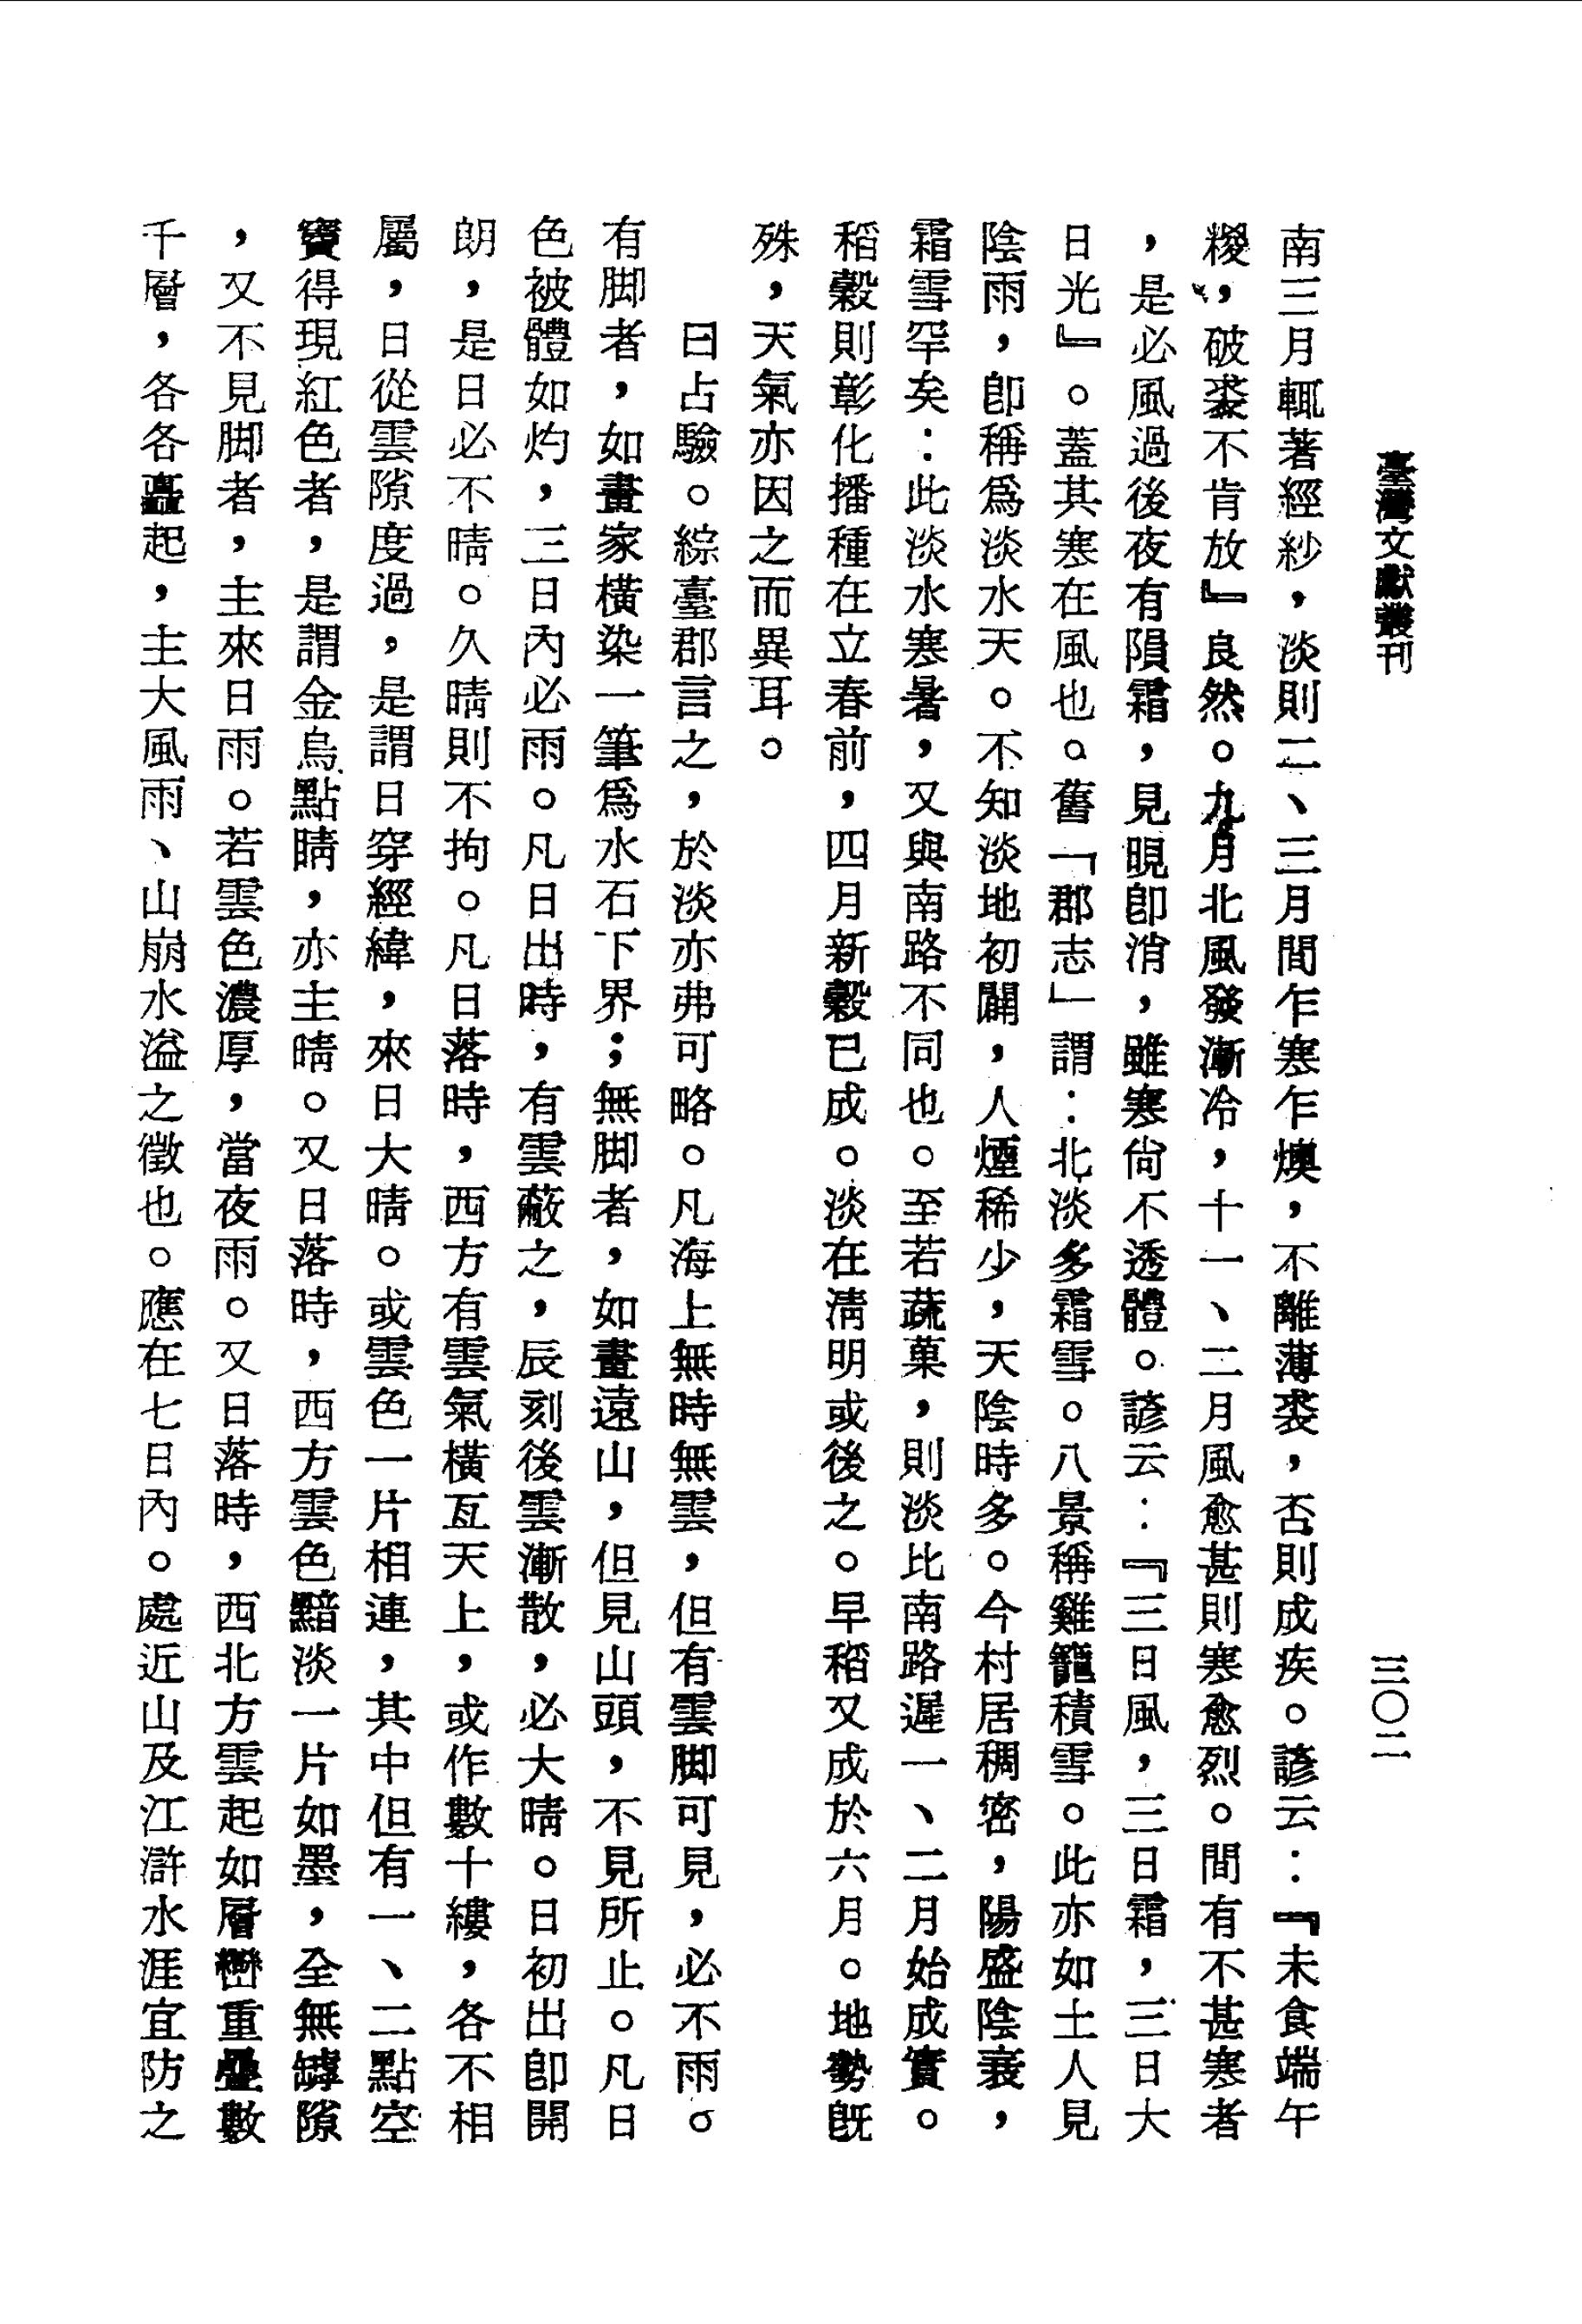 臺灣文獻叢刊
三〇二
南三月輒著經紗，淡則二、三月間乍寒乍燠，不離薄裘，否則成疾。諺云：『未食端午
糉，破裘不肯放』良然。九月北風發漸冷，十一、二月風愈甚則寒愈烈。間有不甚寒者
，是必風過後夜有隕霜，見晛卽消，雖寒尙不透體。諺云：『三日風，三日霜，三日大
日光』。蓋其寒在風也。舊「郡志」謂：北淡多霜雪。八景稱雞籠積雪。此亦如土人見
陰雨，卽稱爲淡水天。不知淡地初闢，人煙稀少，天陰時多。今村居稠密，陽盛陰衰，
霜雪罕矣：此淡水寒暑，又與南路不同也。至若蔬菓，則淡比南路遲一、二月始成實。
稻穀則彰化播種在立春前，四月新穀已成。淡在淸明或後之。早稻又成於六月。地勢旣
殊，天氣亦因之而異耳。
曰占驗。綜臺郡言之，於淡亦弗可略。凡海上無時無雲，但有雲脚可見，必不雨。
有脚者，如畫家橫染一筆爲水石下界；無脚者，如畫遠山，但見山頭，不見所止。凡日
色被體如灼，三日內必雨。凡日出時，有雲蔽之，辰刻後雲漸散，必大晴。日初出卽開
朗，是日必不晴。久晴則不拘。凡日落時，西方有雲氣橫亙天上，或作數十縷，各不相
屬，日從雲隙度過，是謂日穿經緯，來日大晴。或雲色一片相連，其中但有一、二點空
竇得現紅色者，是謂金烏點睛，亦主晴。又日落時，西方雲色黯淡一片如墨，全無罅隙
，又不見脚者，主來日雨。若雲色濃厚，當夜雨。又日落時，西北方雲起如層巒重疊數
千層，各各矗起，主大風雨、山崩水溢之徵也。應在七日內。處近山及江滸水涯宜防之